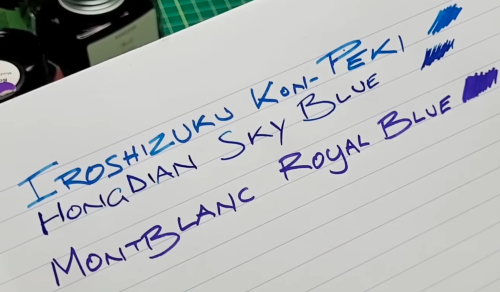 Iroshizuku Kon-Peki
Hongdian Sky Blue
MontBlanc Royal Blue